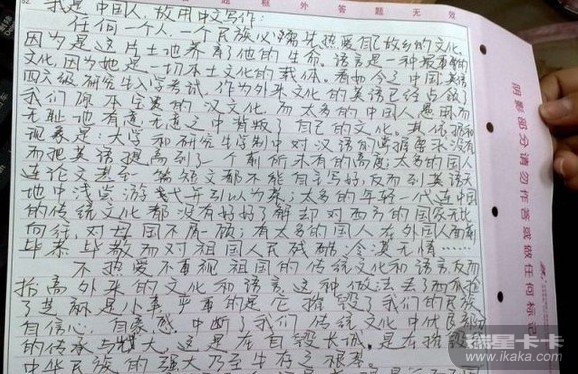 框外答题无效
我是中国人,故用中文写作:
任何一个人,一个民族必需热爱自己故乡的文化,
因为是这片土地养育了他的生命,语言是一种最重要的
文化,因为她是一切本土文化的载体。看如今了中国,英语
四六级,研究生入学考试,作为外来文化的英语已经占
我们原本宝贵的汉文化,而太多的中国人愚昧而
无耻地有意无意之中背叛了自己的文化。其依据和
现象是:大学和研究生学制中对汉语的 要求没有
而把英语提高到了一个前所未有的高度;太多的国人
连论文甚至一篇短文都不能自主写好,反而到英语天
地中浅尝游 并引以为荣;太多的年轻一代连中国
的传统文化都没有好好了解却对西方的国家无比
向往,对母国不屑一顾;有太多的国人在外国人面前
毕恭毕敬而对祖国人民残酷,冷漠无情……
不热爱不重视祖国的传统文化和语言,反而
抬高外来的文化和语言,这种做法丢了西瓜捡
了芝麻是小事,严重的是它摧毁了我们的民族
自信心,自豪感,中断了我们传统文化中优良部分
的传承与光大。这是在自毁长城,是在摧毁
中华民族的强大乃至生存之根基
阴影部分请勿作答或做任何标记
瑞星卡卡
www.ikaka.com